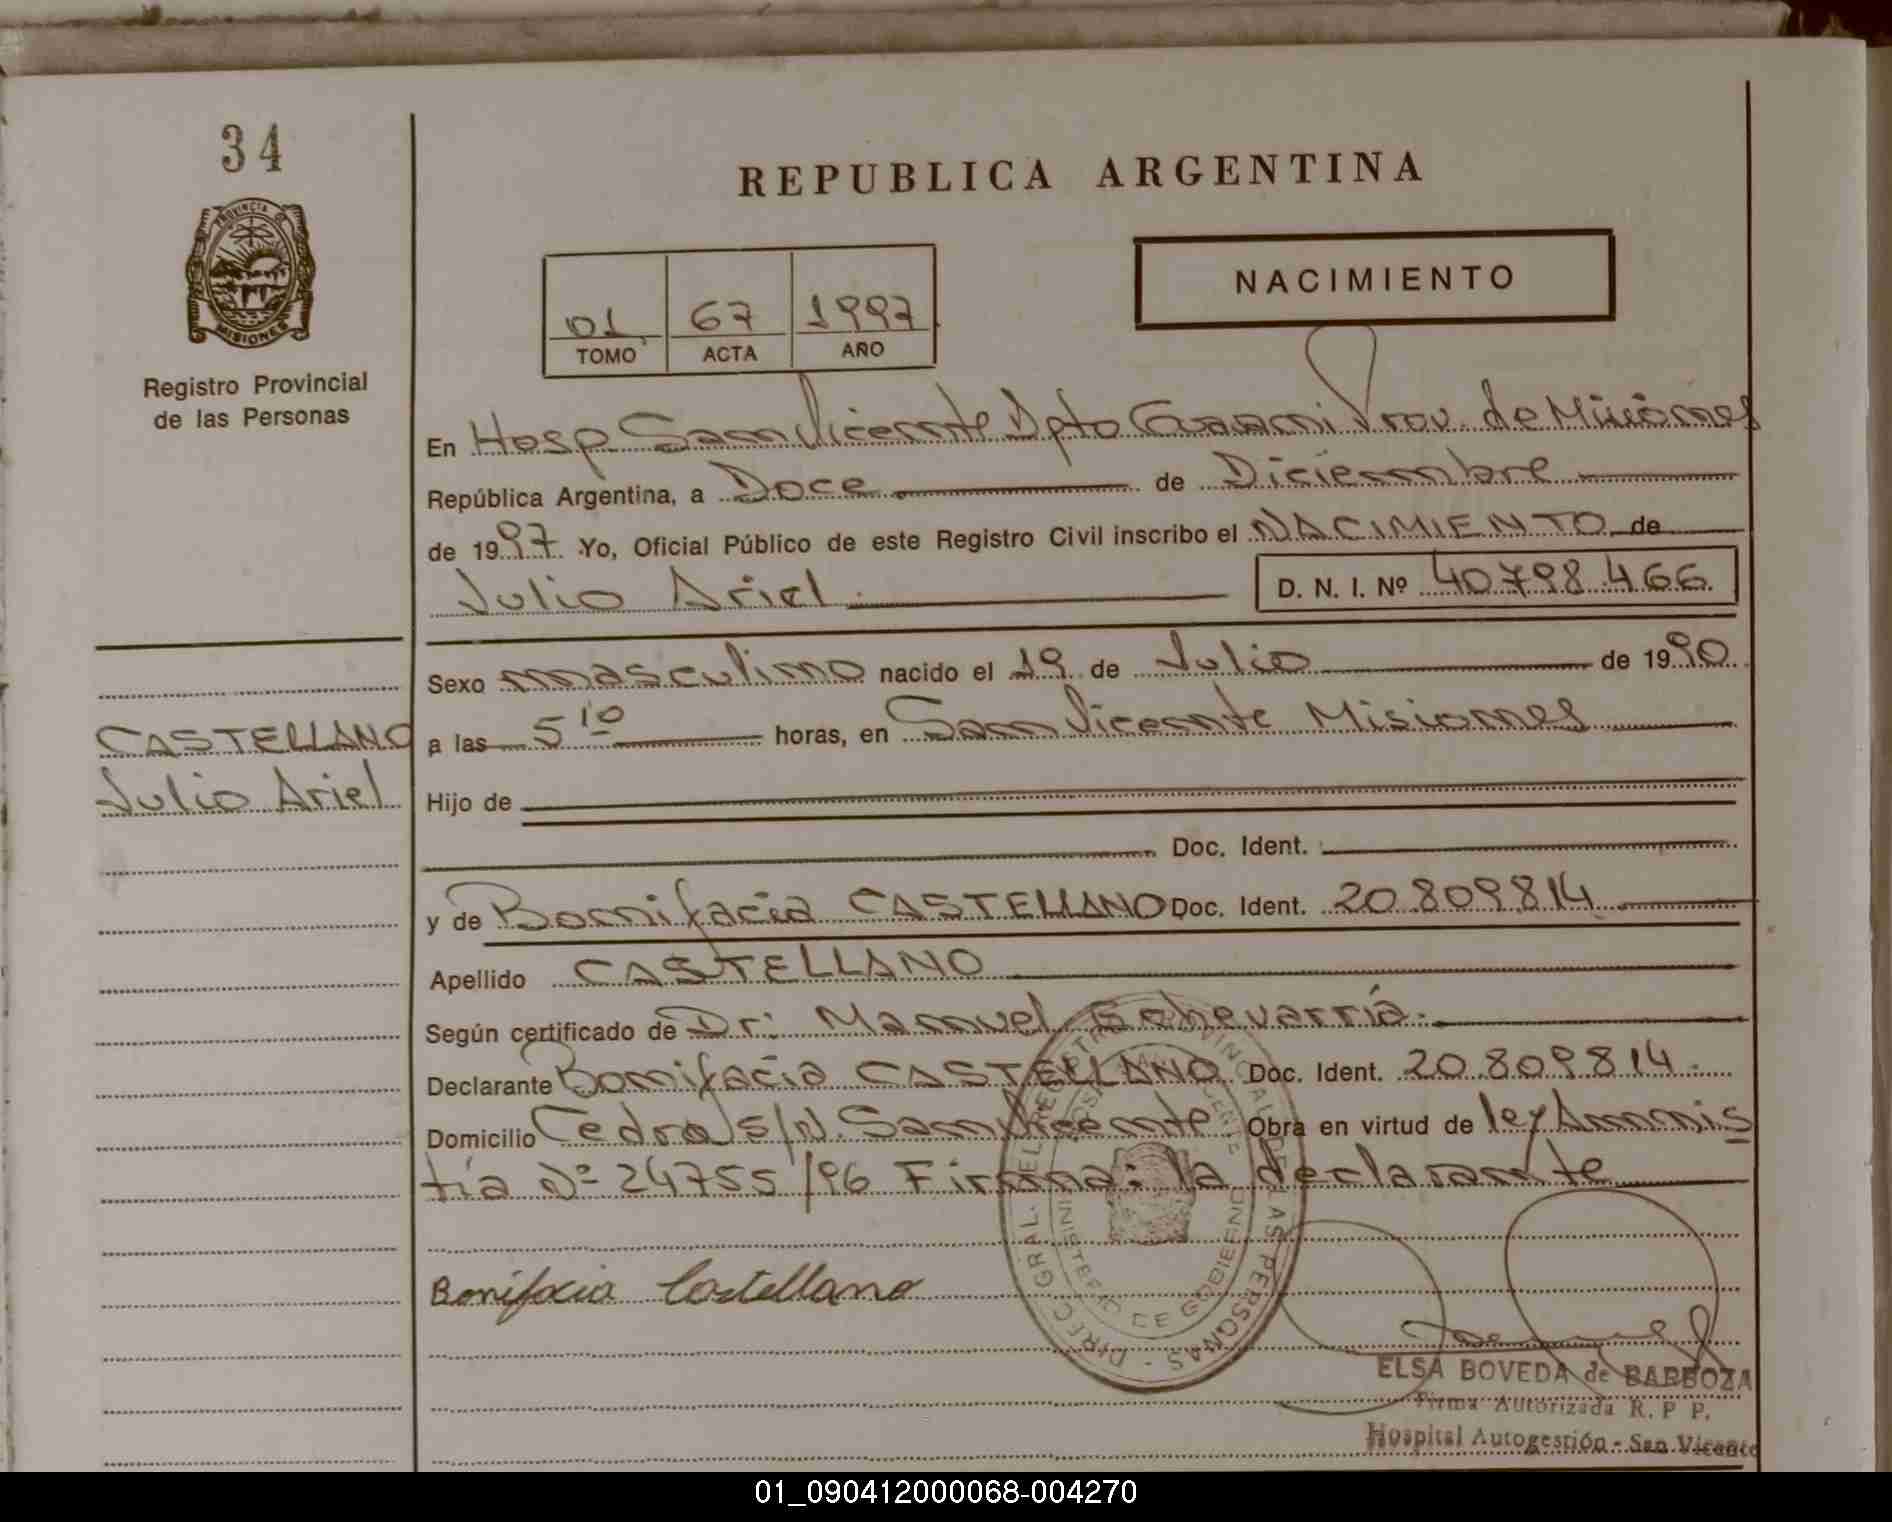 34
PROVINCIA DE
MISIONES
Registro Provincial
de las Personas
CASTELLANO
Julio Ariel
REPUBLICA ARGENTINA
01 67 1997
TOMO ACTA AÑO
NACIMIENTO
En Hosp San Vicente Dpto Guarani Prov. de Misiones
República Argentina, a Doce de Diciembre
de 1997 Yo, Oficial Público de este Registro Civil inscribo el NACIMIENTO de
Julio Ariel D. N. I. Nº 40798466
Sexo masculino nacido el 19 de Julio de 1990
a las 5 10 horas, en San Vicente Misiones
Hijo de
Doc. Ident.
y de Bonifacia CASTELLANO Doc. Ident. 20809814
Apellido CASTELLANO
Según certificado de Dr: Manuel Echevarría.
Declarante Bonifacia CASTELLANO Doc. Ident. 20809814.
Domicilio Cedro s/n. San Vicente Obra en virtud de ley Amnis
tía Nº 24755/96 Firma: la declarante
Bonifacia Castellano
DIREC. GRAL. DEL REGISTRO PROVINCIAL DE LAS PERSONAS -
MINISTERIO DE GOBIERNO
ELSA BOVEDA de BARBOZA
Firma Autorizada R. P P.
Hospital Autogestión - San Vicente
01_090412000068-004270